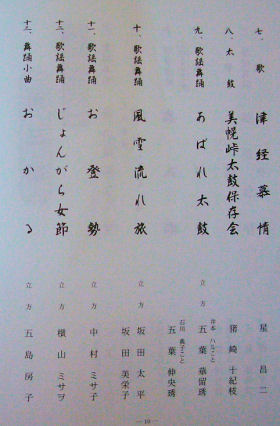 七、歌 津経慕情 星昌二
八、太鼓 美幌峠太鼓保存会 猪崎十紀枝
九、歌謡舞踊 あばれ太鼓 立方 岸本ハルこと 五葉華留琇
石川義子こと 五葉伸央琇
十、歌謡舞踊 風雪流れ旅 立方 坂田太平
坂田美栄子
十一、歌謡舞踊 お登勢 立方 中村ミサ子
十二、歌謡舞踊 じょんがら女節 立方 横山ミサヲ
十三、舞踊小曲 おかる 立方 五島房子
— 10 —